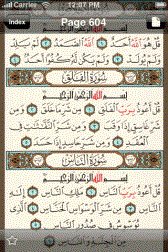 Carrier 12:07 PM
Index Page 604
قُلْ هُوَ اللَّهُ أَحَدٌ ١ اللَّهُ الصَّمَدُ ٢ لَمْ يَلِدْ
وَلَمْ يُولَدْ ٣ وَلَمْ يَكُن لَّهُ كُفُوًا أَحَدٌ ٤
سُورَةُ الْفَلَقِ
بِسْمِ اللَّهِ الرَّحْمَٰنِ الرَّحِيمِ
قُلْ أَعُوذُ بِرَبِّ الْفَلَقِ ١ مِن شَرِّ مَا خَلَقَ ٢ وَمِن
شَرِّ غَاسِقٍ إِذَا وَقَبَ ٣ وَمِن شَرِّ النَّفَّاثَاتِ فِي
الْعُقَدِ ٤ وَمِن شَرِّ حَاسِدٍ إِذَا حَسَدَ ٥
سُورَةُ النَّاسِ
بِسْمِ اللَّهِ الرَّحْمَٰنِ الرَّحِيمِ
قُلْ أَعُوذُ بِرَبِّ النَّاسِ ١ مَلِكِ النَّاسِ ٢ إِلَٰهِ
النَّاسِ ٣ مِن شَرِّ الْوَسْوَاسِ الْخَنَّاسِ ٤ الَّذِي
يُوَسْوِسُ فِي صُدُورِ النَّاسِ ٥
مِنَ الْجِنَّةِ وَالنَّاسِ ٦